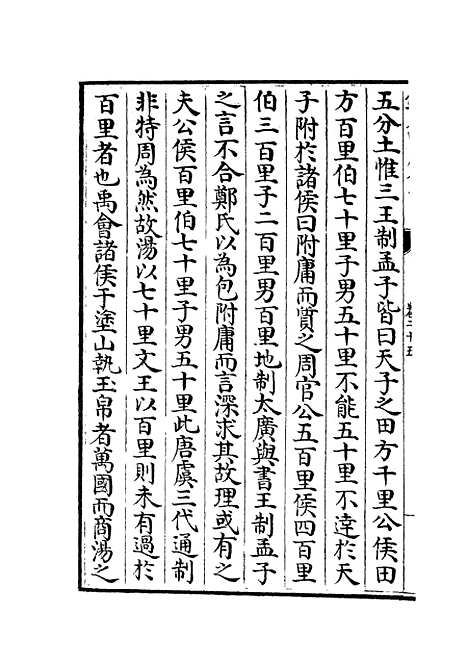 五分土惟三王制孟子皆曰天子之田方千里公侯田
方百里伯七十里子男五十里不能五十里不達於天
子附於諸侯曰附庸而質之周官公五百里侯四百里
伯三百里子二百里男百里地制太廣與書王制孟子
之言不合鄭氏以為包附庸而言深求其故理或有之
夫公侯百里伯七十里子男五十里此唐虞三代通制
非特周為然故湯以七十里文王以百里則未有過於
百里者也禹會諸侯于塗山執玉帛者萬國而商湯之